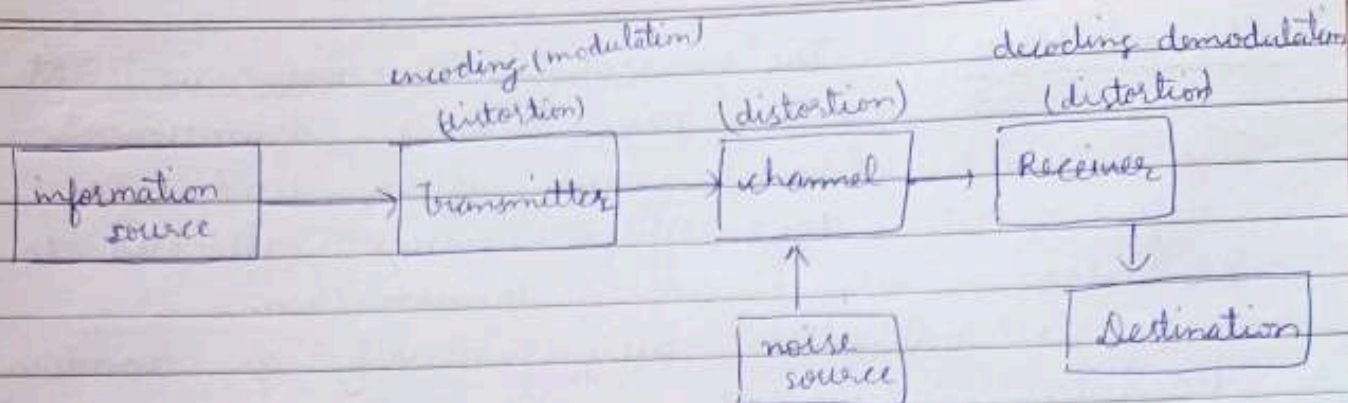 encoding (modulation)
decoding demodulation
(distortion)
(distortion)
(distortion)
information
source
Transmitter
channel
Receiver
noise
source
Destination